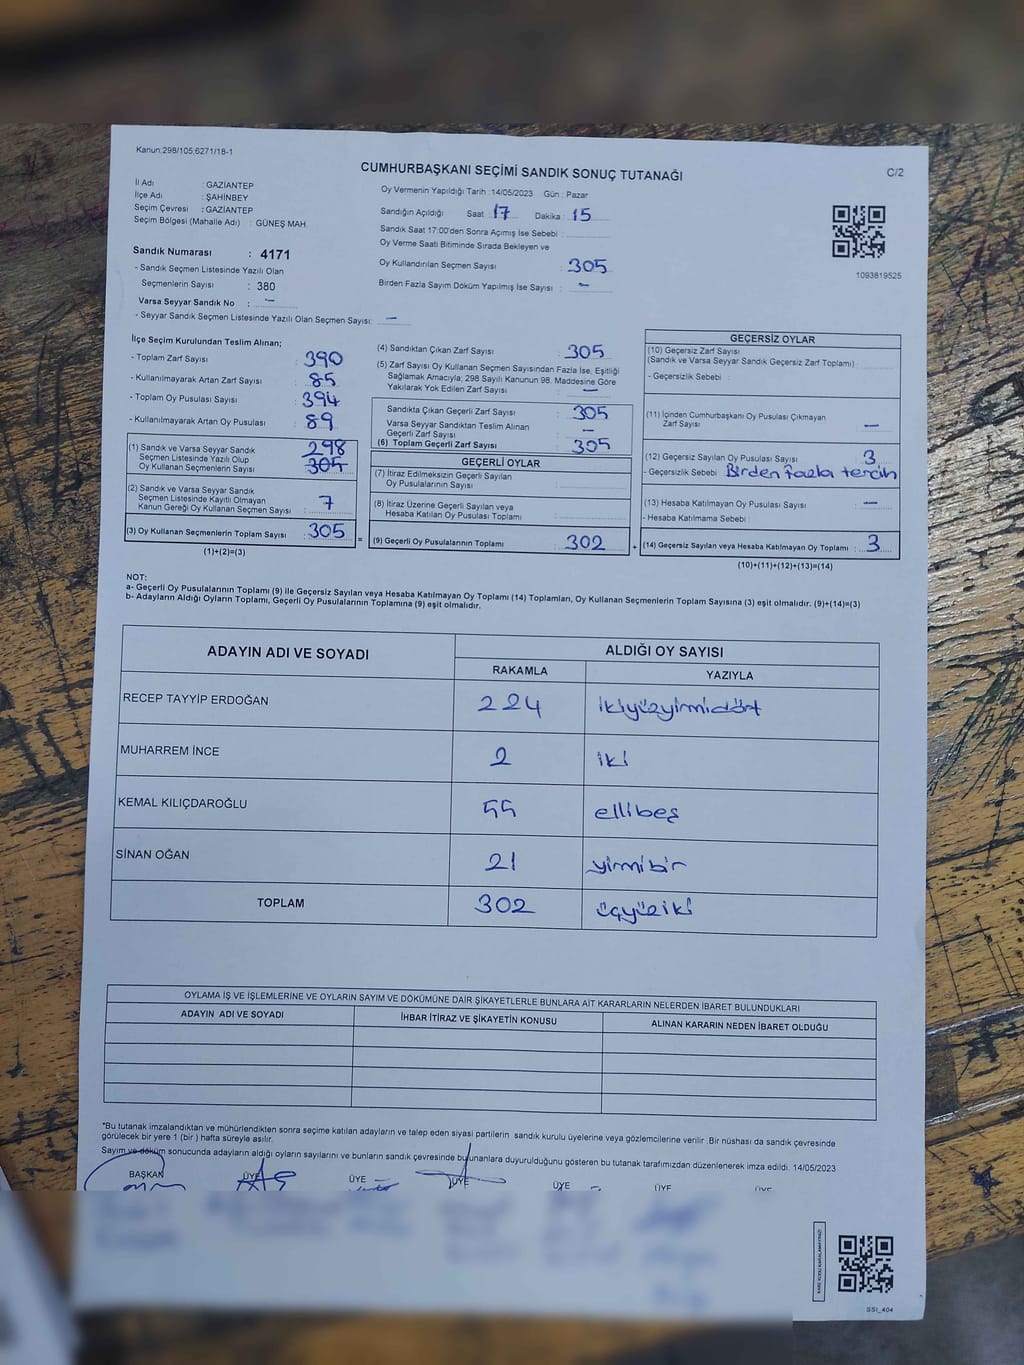 Kanun:298/105;6271/18-1
CUMHURBAŞKANI SEÇİMİ SANDIK SONUÇ TUTANAĞI
C/2
İl Adı : GAZİANTEP
İlçe Adı : ŞAHİNBEY
Seçim Çevresi : GAZİANTEP
Seçim Bölgesi (Mahalle Adı) : GÜNEŞ MAH
Sandık Numarası : 4171
- Sandık Seçmen Listesinde Yazılı Olan
Seçmenlerin Sayısı : 380
Varsa Seyyar Sandık No : -
- Seyyar Sandık Seçmen Listesinde Yazılı Olan Seçmen Sayısı: -
Oy Vermenin Yapıldığı Tarih :14/05/2023 Gün : Pazar
Sandığın Açıldığı Saat : 17 Dakika : 15
Sandık Saat 17:00'den Sonra Açımış İse Sebebi :
Oy Verme Saati Bitiminde Sırada Bekleyen ve
Oy Kullandırılan Seçmen Sayısı : 305
Birden Fazla Sayım Döküm Yapılmış İse Sayısı : -
1093819525
İlçe Seçim Kurulundan Teslim Alınan;
- Toplam Zarf Sayısı : 390
- Kullanılmayarak Artan Zarf Sayısı : 85
- Toplam Oy Pusulası Sayısı : 394
- Kullanılmayarak Artan Oy Pusulası : 89
(1) Sandık ve Varsa Seyyar Sandık 298
Seçmen Listesinde Yazılı Olup
Oy Kullanan Seçmenlerin Sayısı : 305
(2) Sandık ve Varsa Seyyar Sandık
Seçmen Listesinde Kayıtlı Olmayan
Kanun Gereği Oy Kullanan Seçmen Sayısı : 7
(3) Oy Kullanan Seçmenlerin Toplam Sayısı : 305
(1)+(2)=(3)
(4) Sandıktan Çıkan Zarf Sayısı : 305
(5) Zarf Sayısı Oy Kullanan Seçmen Sayısından Fazla İse, Eşitliği
Sağlamak Amacıyla; 298 Sayılı Kanunun 98. Maddesine Göre
Yakılarak Yok Edilen Zarf Sayısı : -
Sandıkta Çıkan Geçerli Zarf Sayısı : 305
Varsa Seyyar Sandıktan Teslim Alınan
Geçerli Zarf Sayısı : -
(6) Toplam Geçerli Zarf Sayısı : 305
GEÇERLİ OYLAR
(7) İtiraz Edilmeksizin Geçerli Sayılan
Oy Pusulalarının Sayısı :
(8) İtiraz Üzerine Geçerli Sayılan veya
Hesaba Katılan Oy Pusulası Toplamı :
= (9) Geçerli Oy Pusulalarının Toplamı : 302
GEÇERSİZ OYLAR
(10) Geçersiz Zarf Sayısı
(Sandık ve Varsa Seyyar Sandık Geçersiz Zarf Toplamı) :
- Geçersizlik Sebebi :
(11) İçinden Cumhurbaşkanı Oy Pusulası Çıkmayan
Zarf Sayısı : -
(12) Geçersiz Sayılan Oy Pusulası Sayısı : 3
- Geçersizlik Sebebi : Birden fazla tercih
(13) Hesaba Katılmayan Oy Pusulası Sayısı : -
- Hesaba Katılmama Sebebi :
+ (14) Geçersiz Sayılan veya Hesaba Katılmayan Oy Toplamı : 3
(10)+(11)+(12)+(13)=(14)
NOT:
a- Geçerli Oy Pusulalarının Toplamı (9) ile Geçersiz Sayılan veya Hesaba Katılmayan Oy Toplamı (14) Toplamları, Oy Kullanan Seçmenlerin Toplam Sayısına (3) eşit olmalıdır. (9)+(14)=(3)
b- Adayların Aldığı Oyların Toplamı, Geçerli Oy Pusulalarının Toplamına (9) eşit olmalıdır.
ADAYIN ADI VE SOYADI ALDIĞI OY SAYISI
RAKAMLA YAZIYLA
RECEP TAYYİP ERDOĞAN 224 ikiyüzyirmidört
MUHARREM İNCE 2 iki
KEMAL KILIÇDAROĞLU 55 ellibeş
SİNAN OĞAN 21 yirmibir
TOPLAM 302 üçyüziki
OYLAMA İŞ VE İŞLEMLERİNE VE OYLARIN SAYIM VE DÖKÜMÜNE DAİR ŞİKAYETLERLE BUNLARA AİT KARARLARIN NELERDEN İBARET BULUNDUKLARI
ADAYIN ADI VE SOYADI İHBAR İTİRAZ VE ŞİKAYETİN KONUSU ALINAN KARARIN NEDEN İBARET OLDUĞU
*Bu tutanak imzalandıktan ve mühürlendikten sonra seçime katılan adayların ve talep eden siyasi partilerin sandık kurulu üyelerine veya gözlemcilerine verilir .Bir nüshası da sandık çevresinde
görülecek bir yere 1 (bir ) hafta süreyle asılır.
Sayım ve döküm sonucunda adayların aldığı oyların sayılarını ve bunların sandık çevresinde bulunanlara duyurulduğunu gösteren bu tutanak tarafımızdan düzenlenerek imza edildi. 14/05/2023
BAŞKAN ÜYE ÜYE ÜYE ÜYE ÜYE ÜYE
KARE KODU KARALAMAYINIZ!
SSI_404